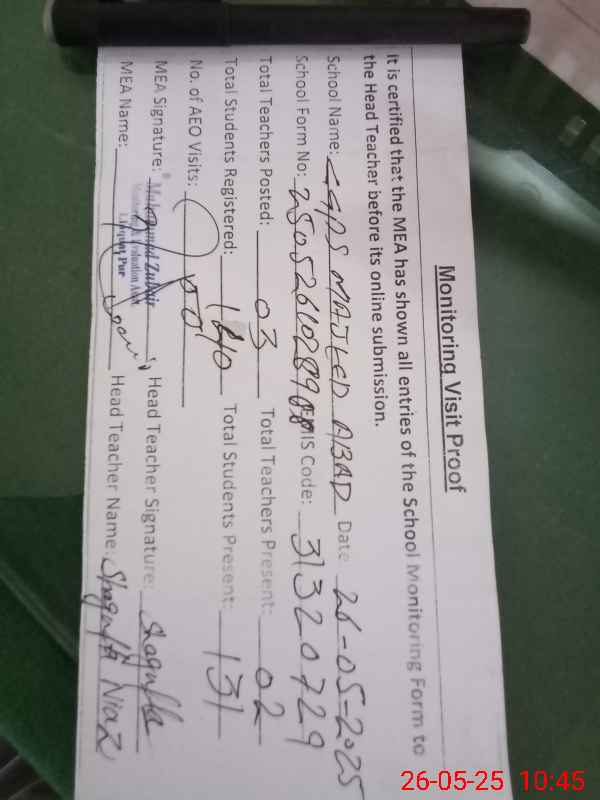 Monitoring Visit Proof
It is certified that the MEA has shown all entries of the School Monitoring Form to
the Head Teacher before its online submission.
School Name: GGPS MAJEED ABAD Date 26-05-2025
School Form No: EMIS Code: 31320729
Total Teachers Posted: 03 Total Teachers Present: 02
Total Students Registered: 140 Total Students Present: 131
No. of AEO Visits:
MEA Signature: Head Teacher Signature: Shagufta
MEA Name: Head Teacher Name: Shagufta Niaz
Muhammad Zubair
Monitoring & Evaluation Assistant
26-05-25 10:45